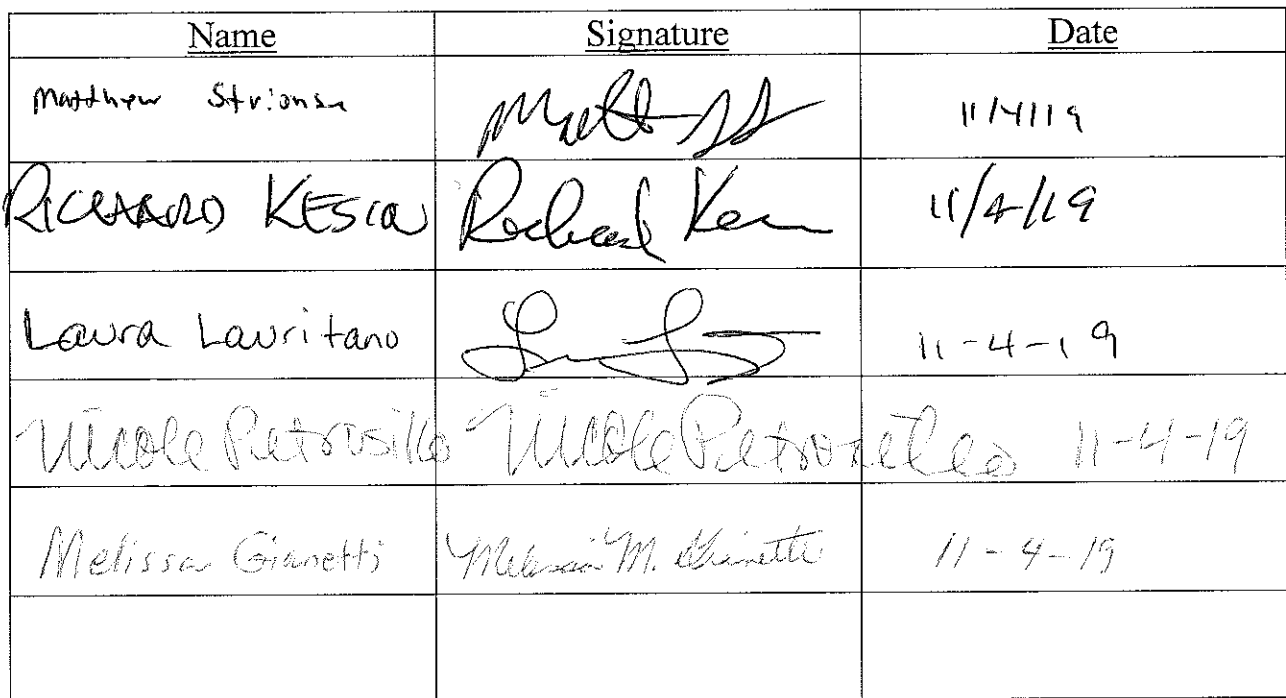 Name Signature Date
Matthew 11/4/19
RICHARD 11/4/19
Laura Lauritano 11-4-19
Nicole Petrosillo Nicole Petrosillo 11-4-19
Melissa Gianetti Melissa M. Gianetti 11-4-19